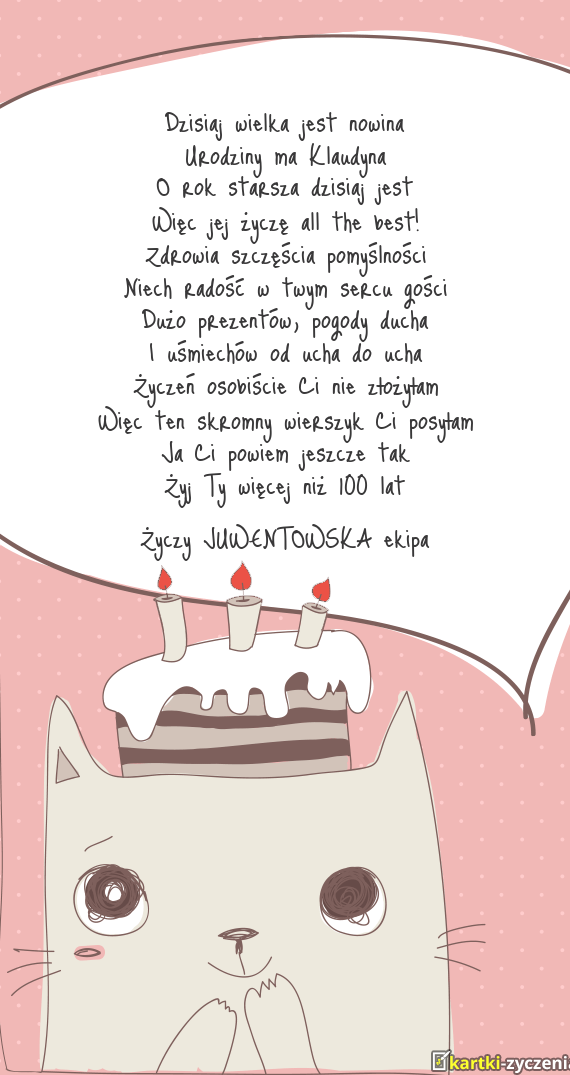 Dzisiaj wielka jest nowina
Urodziny ma Klaudyna
O rok starsza dzisiaj jest
Więc jej życzę all the best!
Zdrowia szczęścia pomyślności
Niech radość w twym sercu gości
Dużo prezentów, pogody ducha
I uśmiechów od ucha do ucha
Życzeń osobiście Ci nie złożyłam
Więc ten skromny wierszyk Ci posyłam
Ja Ci powiem jeszcze tak
Żyj Ty więcej niż 100 lat
Życzy JUWENTOWSKA ekipa
kartki-zyczeni